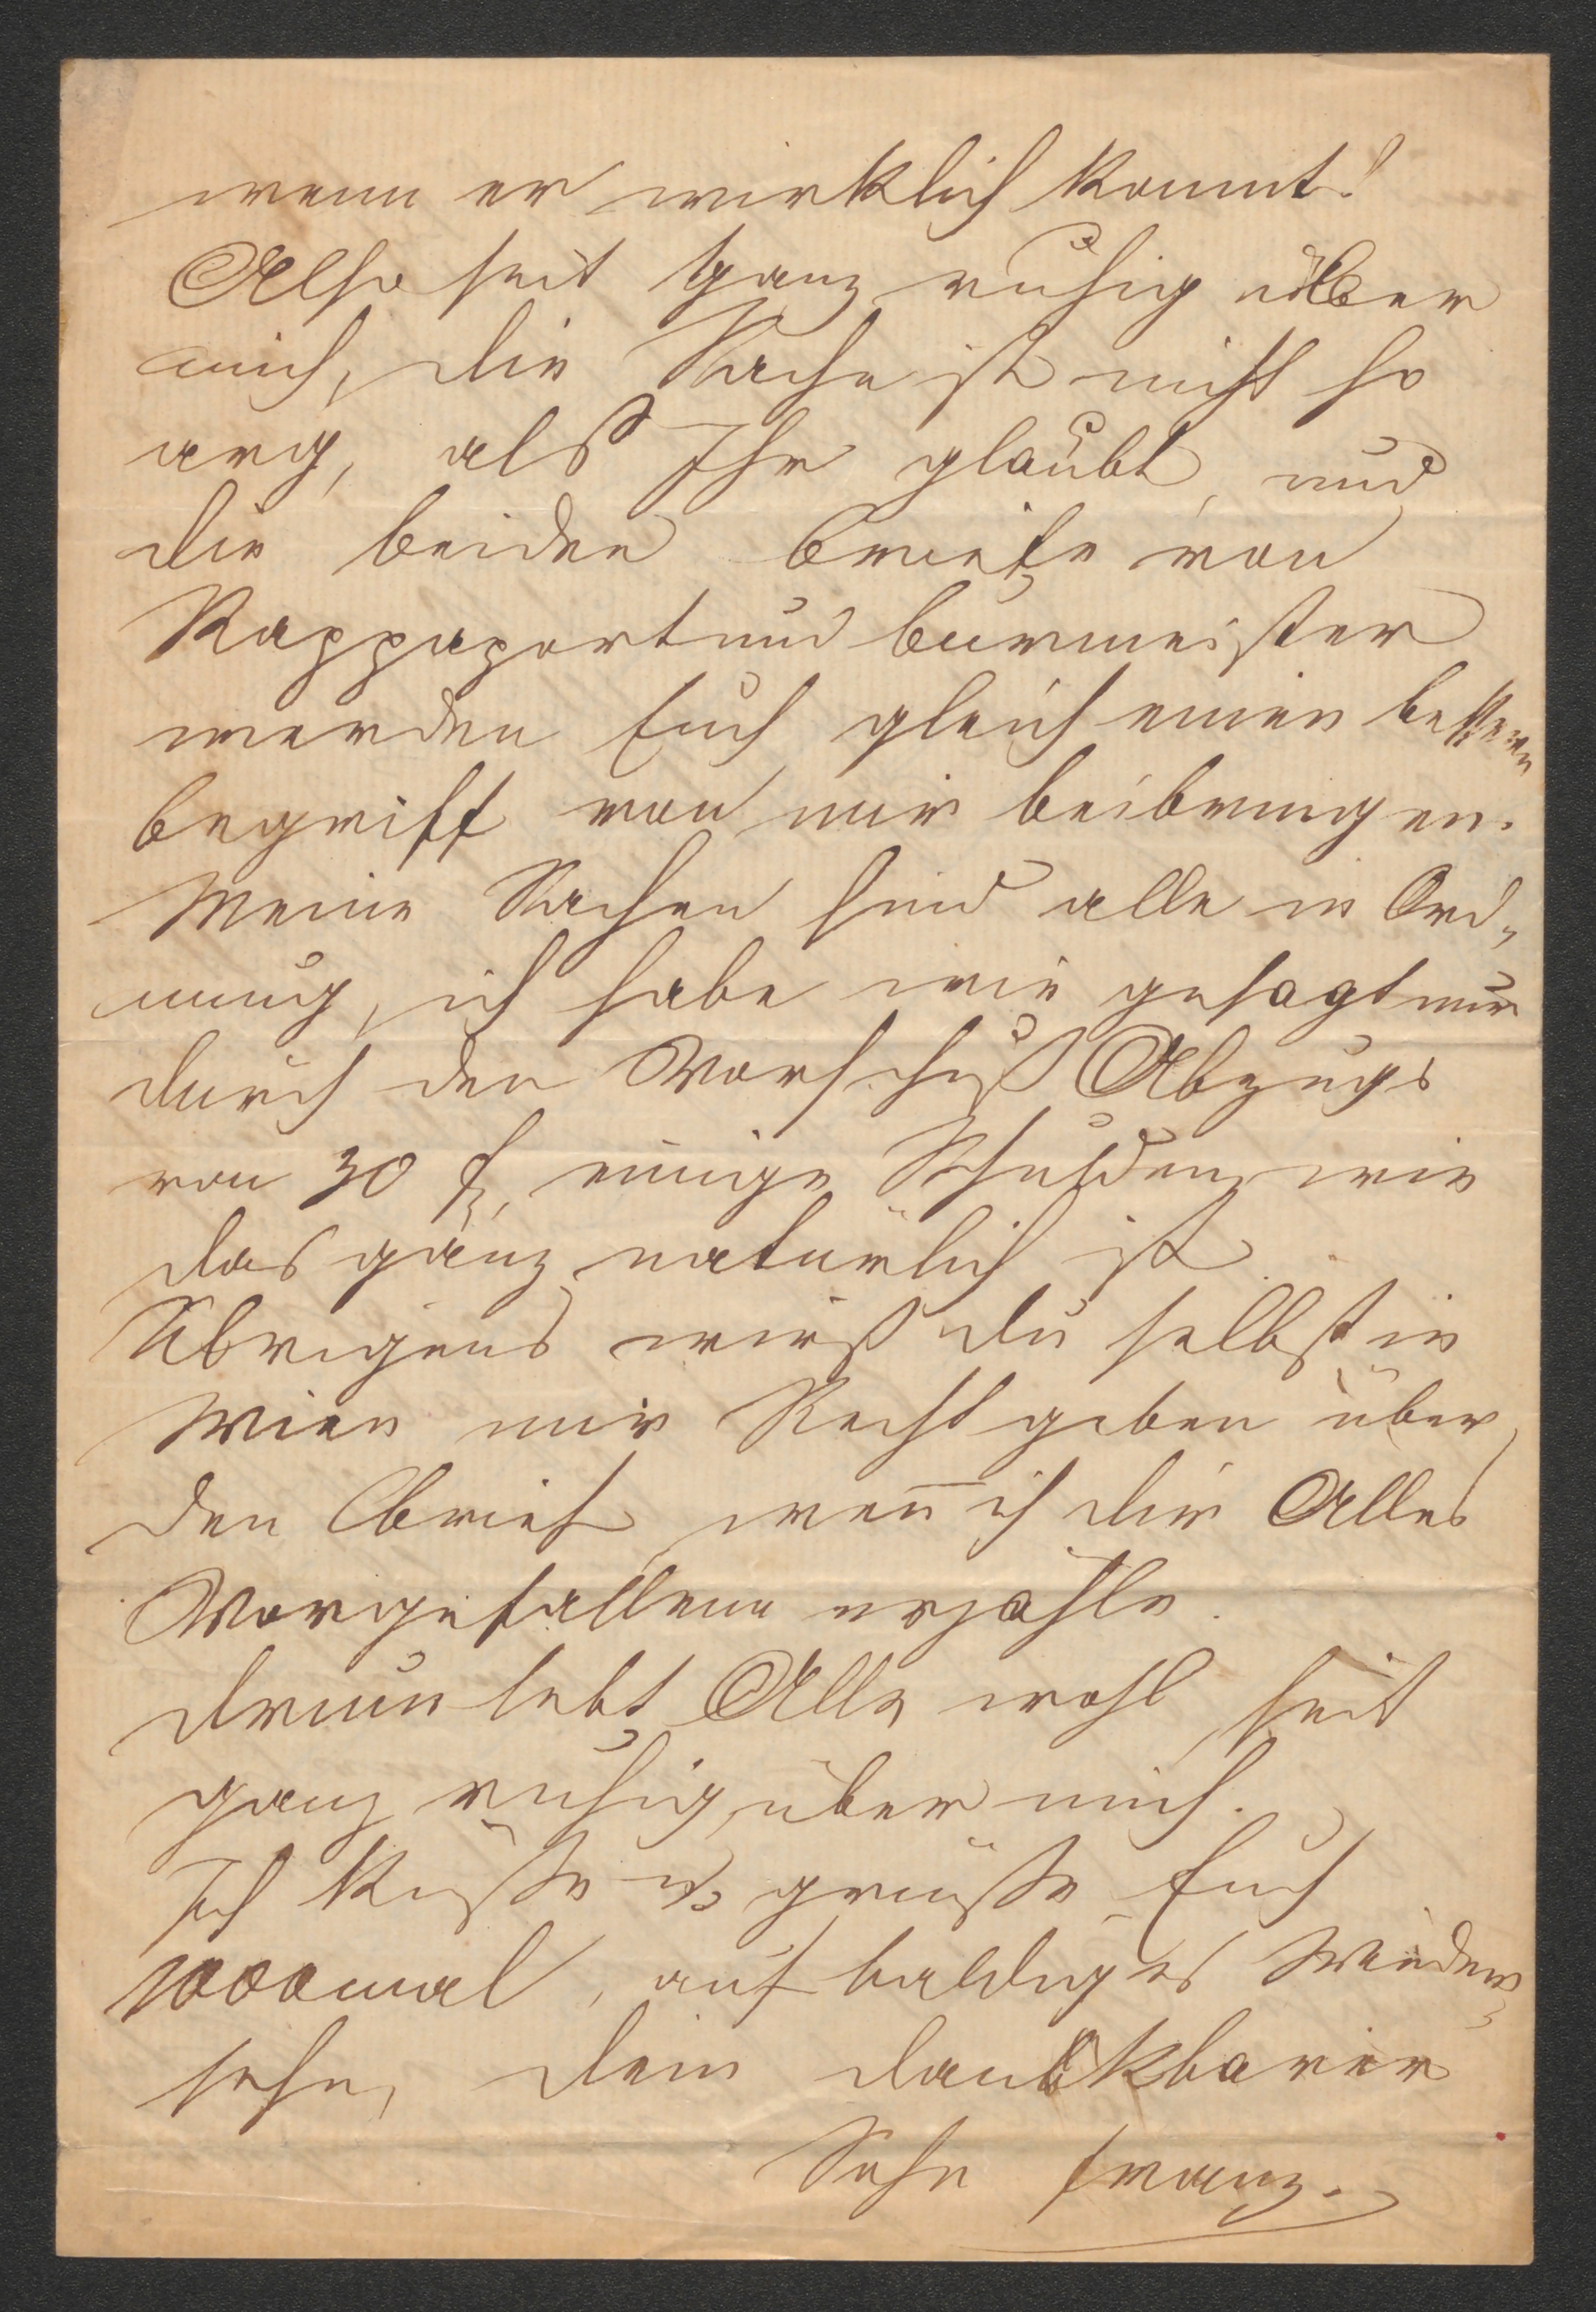 wenn er wirklich kommt!
Also seit ganz ruhig über
mich, die Sache ist nicht so
arg, als Ihr glaubt, und
die beiden Briefe von
Rappaport und Burmeister
werden Euch gleich einen besseren
Begriff von mir beibringen.
Meine Sachen sind alle in Ord-
nung, ich habe wie gesagt nur
durch den Vorschuß Abzugs
von 30 f, einige Schulden wie
das ganz natürlich ist.
Übrigens wirst du selbst in
Wien mir Recht geben über
den Brief, wen̄ ich dir Alles
Vorgefallene erzähle.
Drum lebt Alle wohl, seit
ganz ruhig über mich.
Ich küsse u. grüsse Euch
1000mal, auf baldiges Wieder-
sehn, dein dankbarer
Sohn Franz.